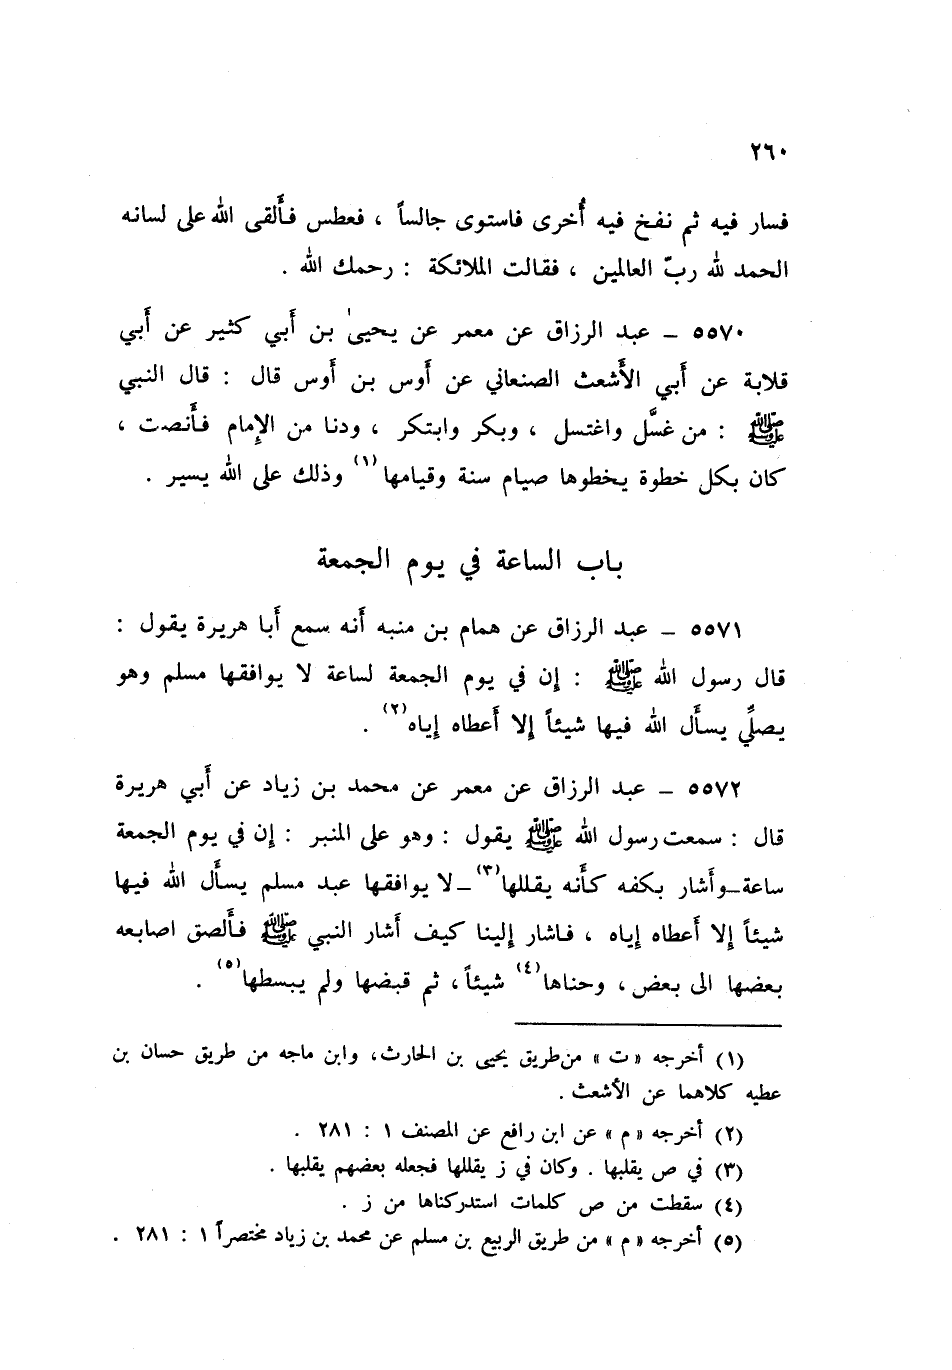 ٢٦٠
فسار فيه ثم نفخ فيه أُخرى فاستوى جالساً ، فعطس فأَلقى الله على لسانه
الحمد لله ربّ العالمين ، فقالت الملائكة : رحمك الله .
٥٥٧٠ – عبد الرزاق عن معمر عن يحيىٰ بن أَبي كثير عن أَبي
قلابة عن أَبي الأَشعث الصنعاني عن أَوس بن أَوس قال : قال النبي
ﷺ : من غسَّل واغتسل ، وبكر وابتكر ، ودنا من الإِمام فأَنصت ،
كان بكل خطوة يخطوها صيام سنة وقيامها(١) وذلك على الله يسير .
باب الساعة في يوم الجمعة
٥٥٧١ – عبد الرزاق عن همام بن منبه أَنه سمع أَبا هريرة يقول :
قال رسول الله ﷺ : إِن في يوم الجمعة لساعة لا يوافقها مسلم وهو
يصلِّي يسأَل الله فيها شيئاً إِلا أَعطاه إِياه(٢) .
٥٥٧٢ – عبد الرزاق عن معمر عن محمد بن زياد عن أَبي هريرة
قال : سمعت رسول الله ﷺ يقول : وهو على المنبر : إِن في يوم الجمعة
ساعة–وأَشار بكفه كأَنه يقللها(٣)–لا يوافقها عبد مسلم يسأَل الله فيها
شيئاً إِلا أَعطاه إِياه ، فاشار إِلينا كيف أَشار النبي ﷺ فأَلصق اصابعه
بعضها الى بعض ، وحناها(٤) شيئاً ، ثم قبضها ولم يبسطها(٥) .
(١) أخرجه « ت » من طريق يحيى بن الحارث، وابن ماجه من طريق حسان بن
عطيه كلاهما عن الأشعث .
(٢) أخرجه « م » عن ابن رافع عن المصنف ١ : ٢٨١ .
(٣) في ص يقلبها . وكان في ز يقللها فجعله بعضهم يقلبها .
(٤) سقطت من ص كلمات استدركناها من ز .
(٥) أخرجه « م » من طريق الربيع بن مسلم عن محمد بن زياد مختصراً ١ : ٢٨١ .